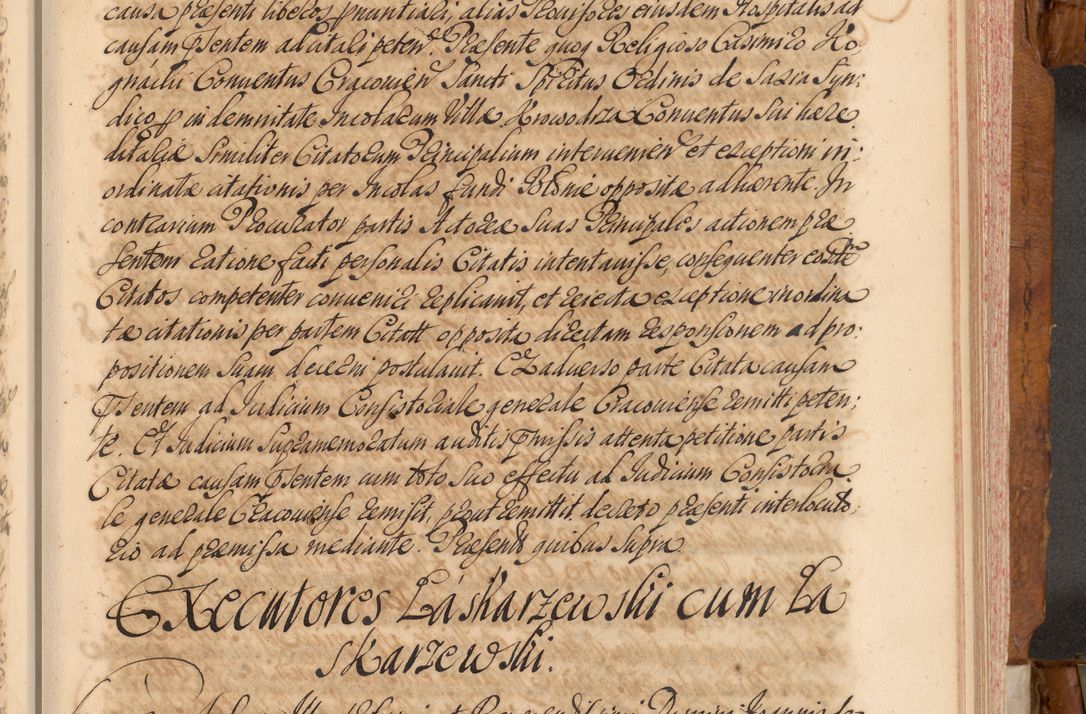 causa præsenti libelos pnuntiali, alias Provisores eiusdem Hospitalis ad
causam Psentem ad citali peten. Præsente quoq Religioso Casimiro Ro
gnalii Conventus Cracovien Sancti Spiritus Ordinis de Saxia Syn:
dico p indemnitate Incolarum Villæ Krowodrza Conventus Sui hære
ditariæ Similiter Citatorum Principalium intervenien et exceptioni in:
ordinatæ citationis per Incolas fundi Bloniæ oppositæ adhærente. In
contrarium Procurator partis Actoreæ Suas Principales actionem præ
sentem ratione facti personalis Citatis intentavisse, consequenter eosdem
Citatos competenter conveniri replicavit, et reiecta exceptione inordina
tæ citationis per partem Citatt opposita directam responsionem ad pro:
positionem Suam decerni postulavit. Ex adverso parte Citata causam
Psentem ad Iudicium Consistoriale generale Cracoviense remitti peten:
te. Et Iudicium Supramemoratum auditis Pmissis attenta petitione partis
Citatæ causam Psentem cum toto Suo effectu ad Iudicium Consistoria
le generale Cracoviense remisit, prout remittit decreto præsenti interlocuto
rio ad præmissa mediante. Præsentt quibus Supra.
Executores Láskarzewskii cum La
skarzewskii.